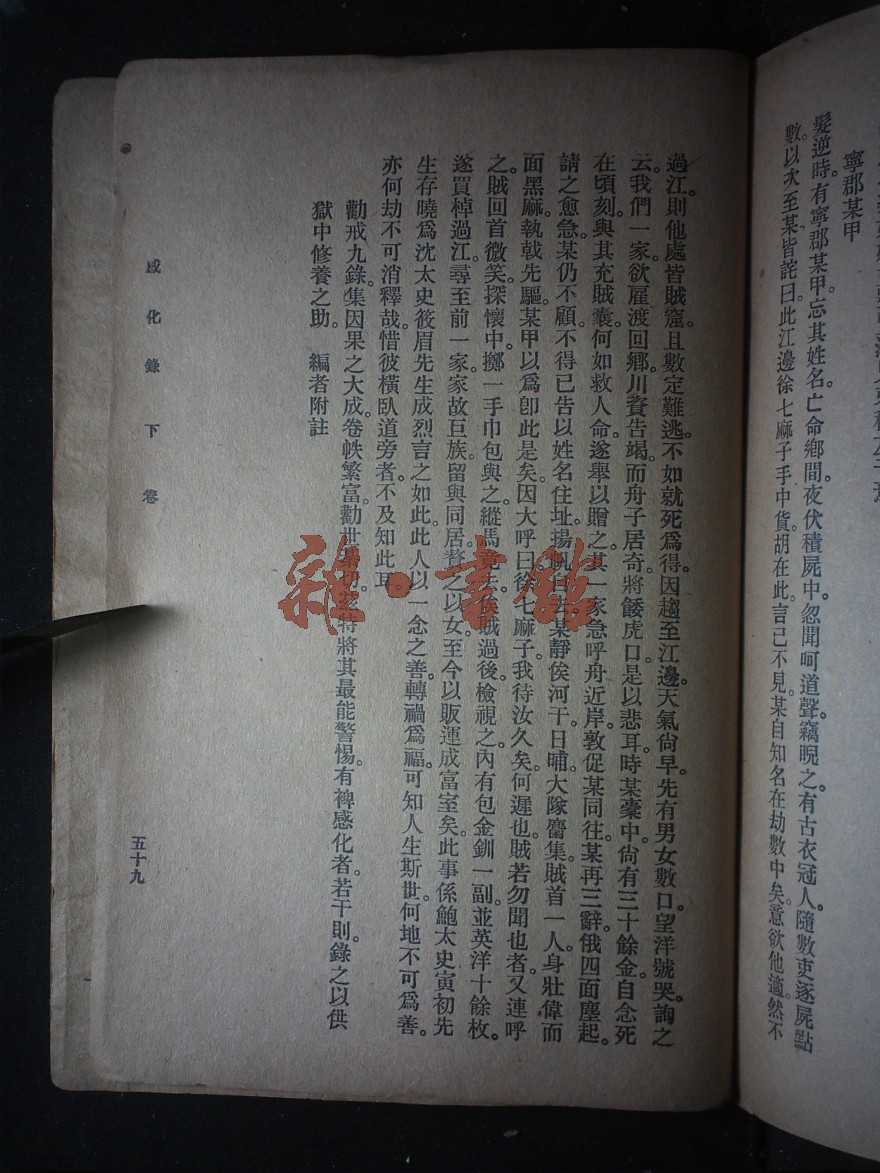 寧郡某甲
髮逆時。有寧郡某甲忘其姓名。亡命鄉間。夜伏積屍中。忽聞呵道聲。竊睨之。有古衣冠人。隨數吏逐屍點
數。以次至某。皆詫曰。此江邊徐七麻子手中貨。胡在此。言已不見。某自知名在劫數中矣。意欲他適。然不
過江。則他處皆賊窟。且數定難逃。不如就死爲得。因趨至江邊。天氣尙早。先有男女數口。望洋號哭。詢之
云。我們一家。欲雇渡回鄉。川資告竭。而舟子居奇。將餧虎口。是以悲耳。時某橐中尙有三十餘金。自念死
在頃刻。與其充賊囊。何如救人命。遂舉以贈之。其一家急呼舟近岸。敦促某同往。某再三辭。俄四面塵起。
請之愈急。某仍不顧。不得已告以姓名住址。揚帆去。某靜俟河干。日晡大隊麕集。賊首一人。身壯偉而
面黑麻。執戟先驅。某甲以爲卽此是矣。因大呼曰。徐七麻子。我待汝久矣。何遲也。賊若勿聞也者。又連呼
之。賊回首微笑。探懷中。擲一手巾包與之。縱馬竟去。俟賊過後。檢視之。內有包金釧一副。並英洋十餘枚。
遂買棹過江。尋至前一家。家故巨族。留與同居。贅之以女。至今以販運成富室矣。此事係鮑太史寅初先
生存曉爲沈太史筱眉先生成烈言之如此。此人以一念之善。轉禍爲福。可知人生斯世。何地不可爲善。
亦何劫不可消釋哉。惜彼橫臥道旁者。不及知此耳。
勸戒九錄。集因果之大成。卷帙繁富。勸世切。茲特將其最能警惕。有裨感化者。若干則。錄之以供
獄中修養之助。 編者附註
感化錄 下卷
五十九
雜·書館